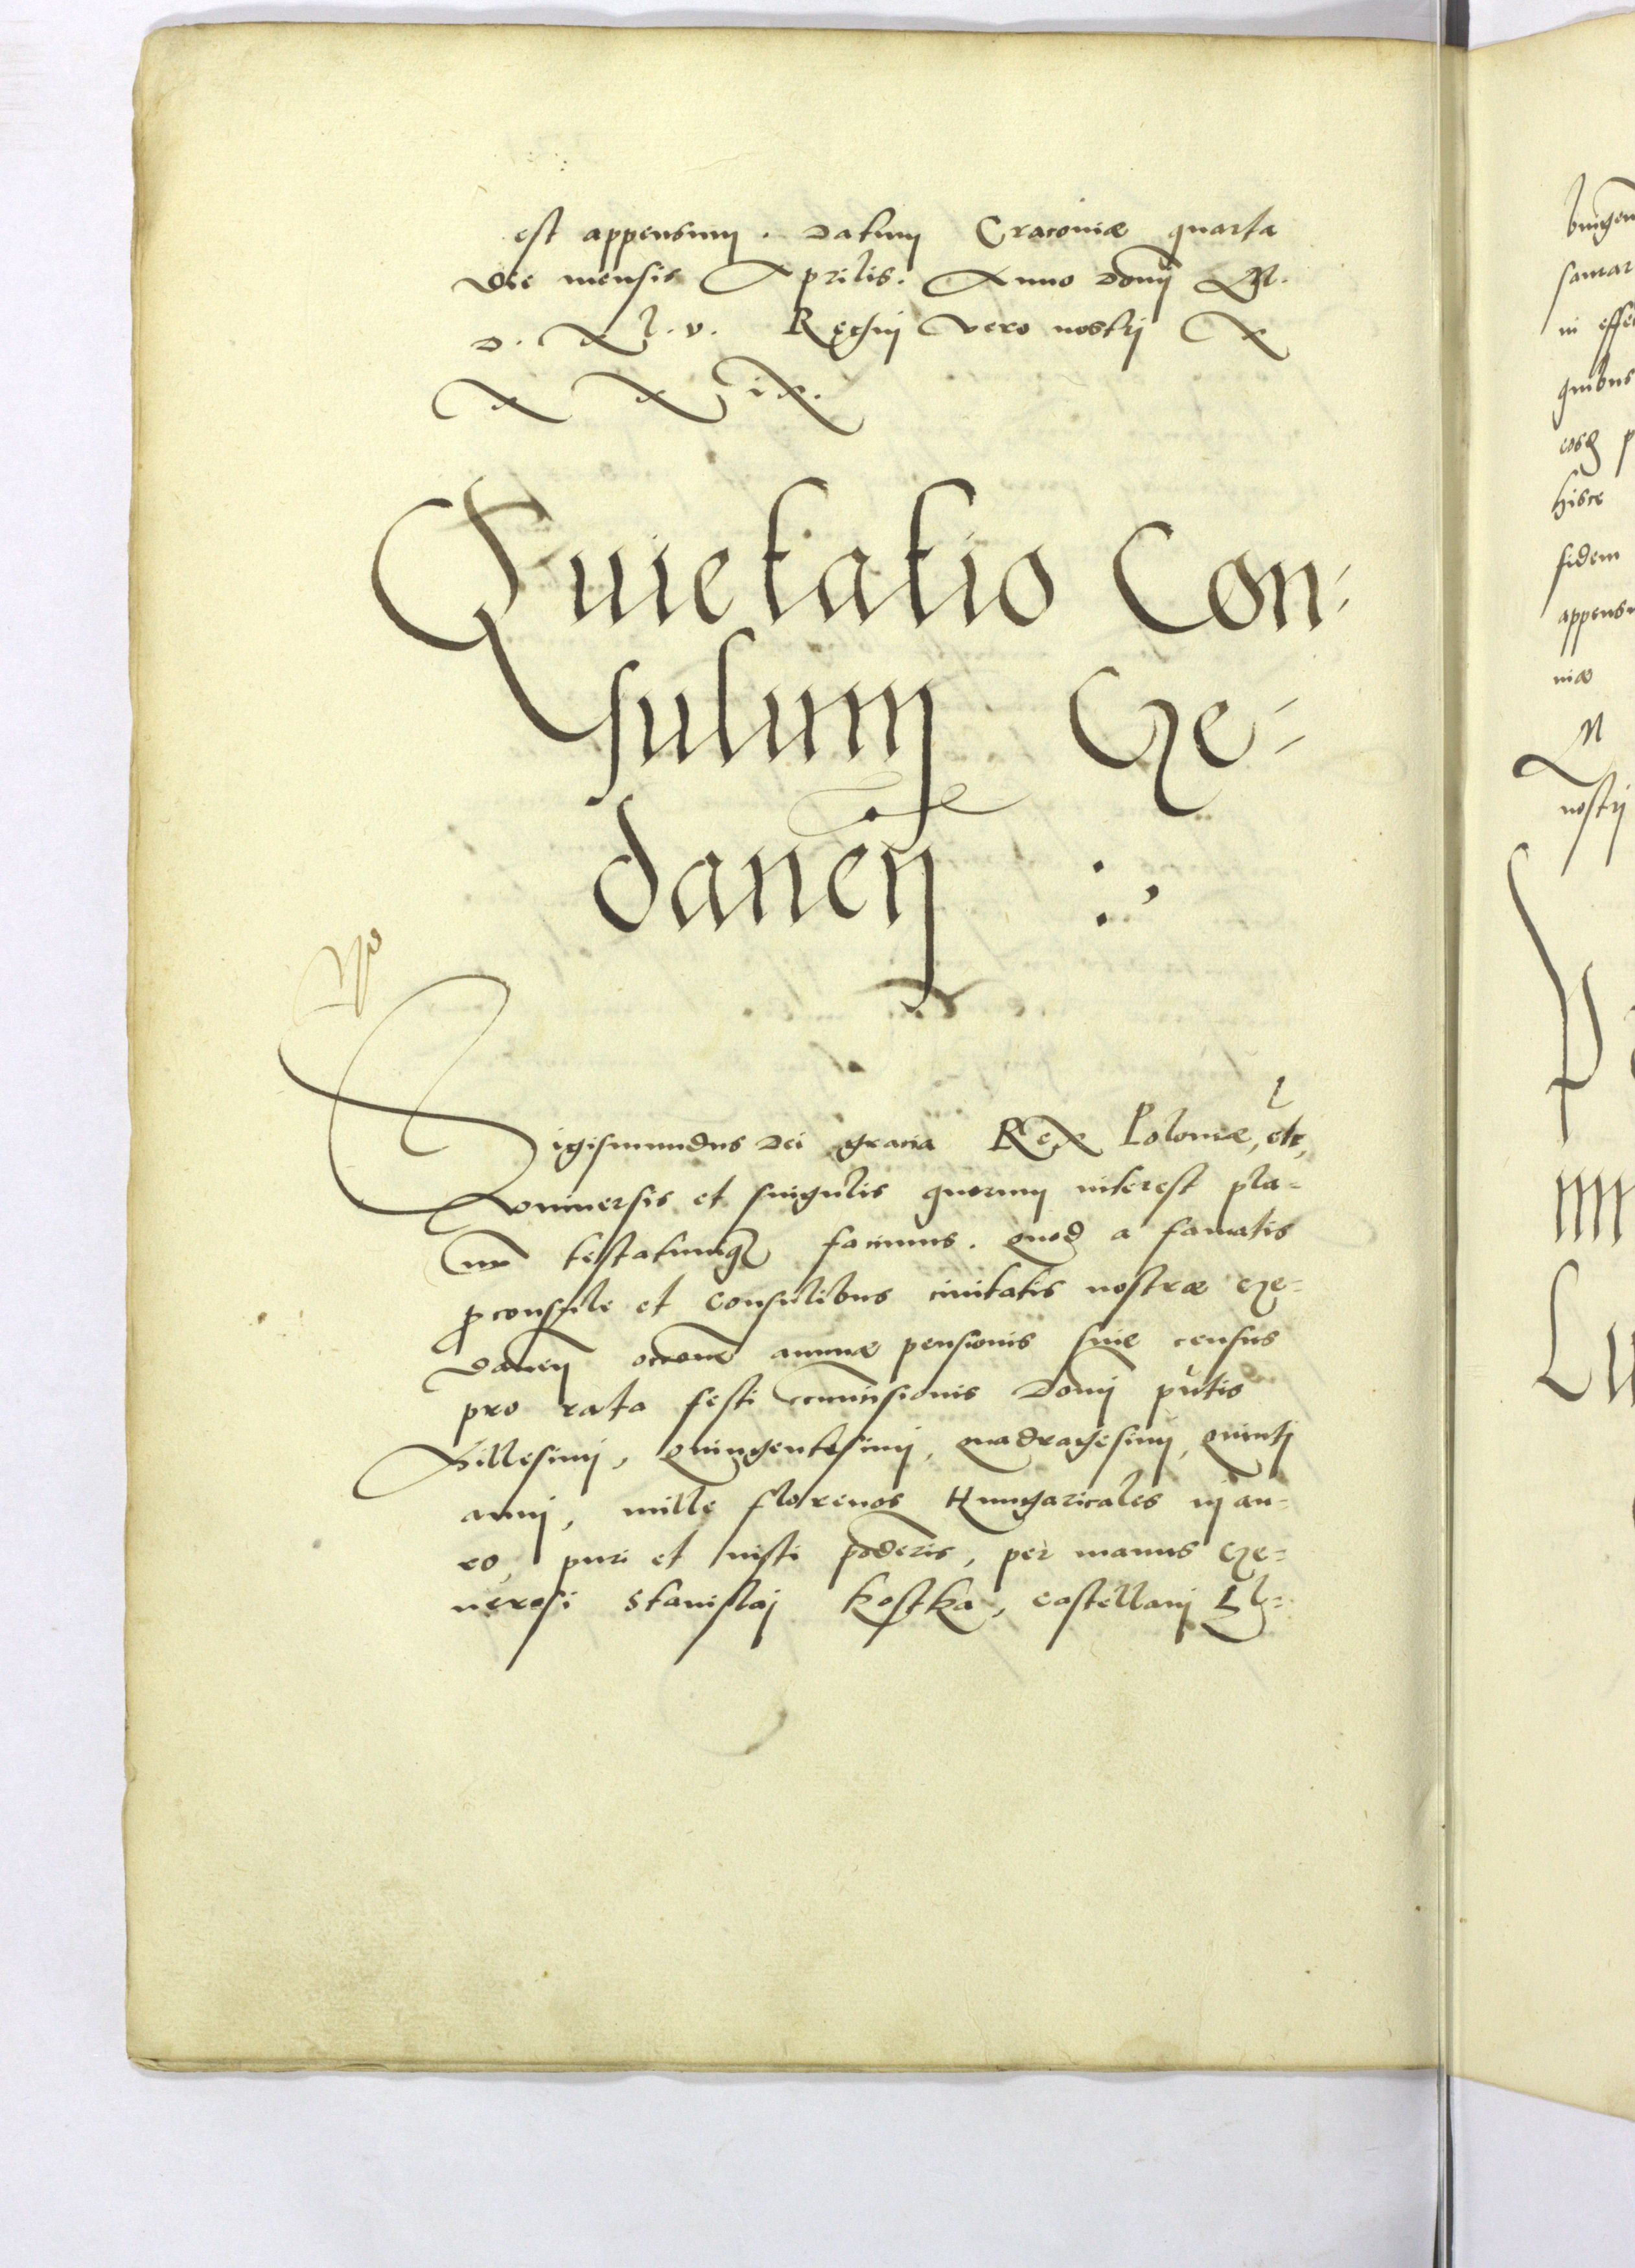 est appensum. Datum Cracoviæ quarta
die mensis Aprilis. Anno domj M.
D. X L. v. Regnj vero nostrj X
X X ix.
Quietatio Con-
sulum Ge-
danen̄ :,
Sigismundus dei gracia Rex Poloniæ, etc,
Vniversis et singulis quorum interest pla-
nu testatumq facimus. quod a famatis
p consule et consulibus civitatis nostræ Ge-
danen̄ annuæ pensionis sive census
pro rata festi domj pn̄tis
Millesimj, quingentesimj, quadragesimj, quintj
annj, mille florenos Hungaricales in au-
ro, puri et iusti poderis, per manus Ge-
nerosi Stanislaj Kostka, castellanj El-
bingen
samar
in effec
quibus
eosd p
hisce
fidem
appensu
niæ
M
nostrj